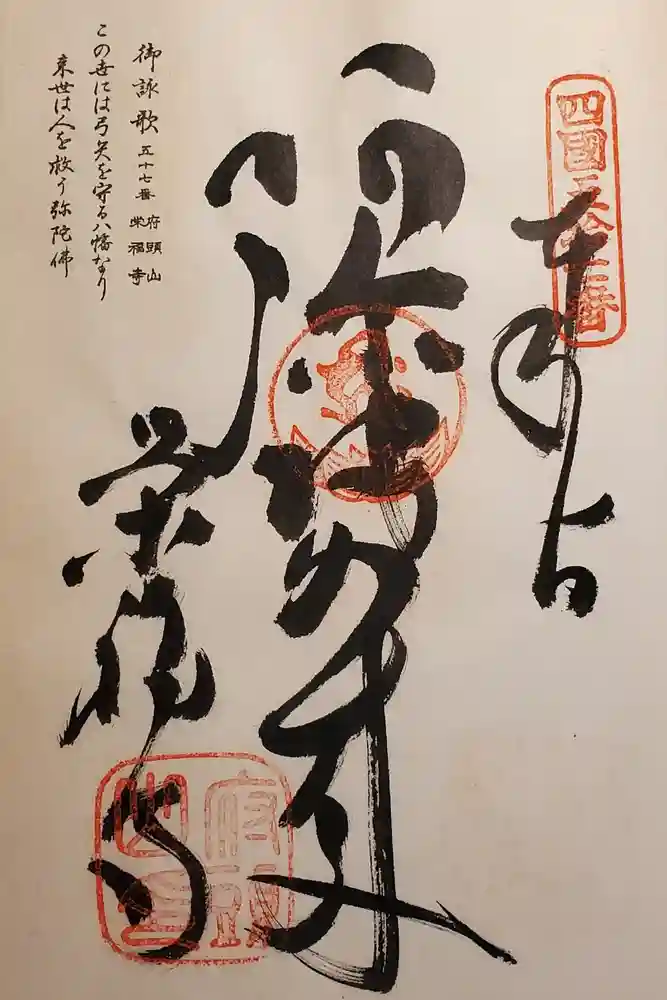 四國五拾七番
阿弥陀如来
栄福寺
府頭山
御詠歌 五十七番 府頭山 栄福寺
この世には弓矢を守る八幡なり
来世は人を救う弥陀佛